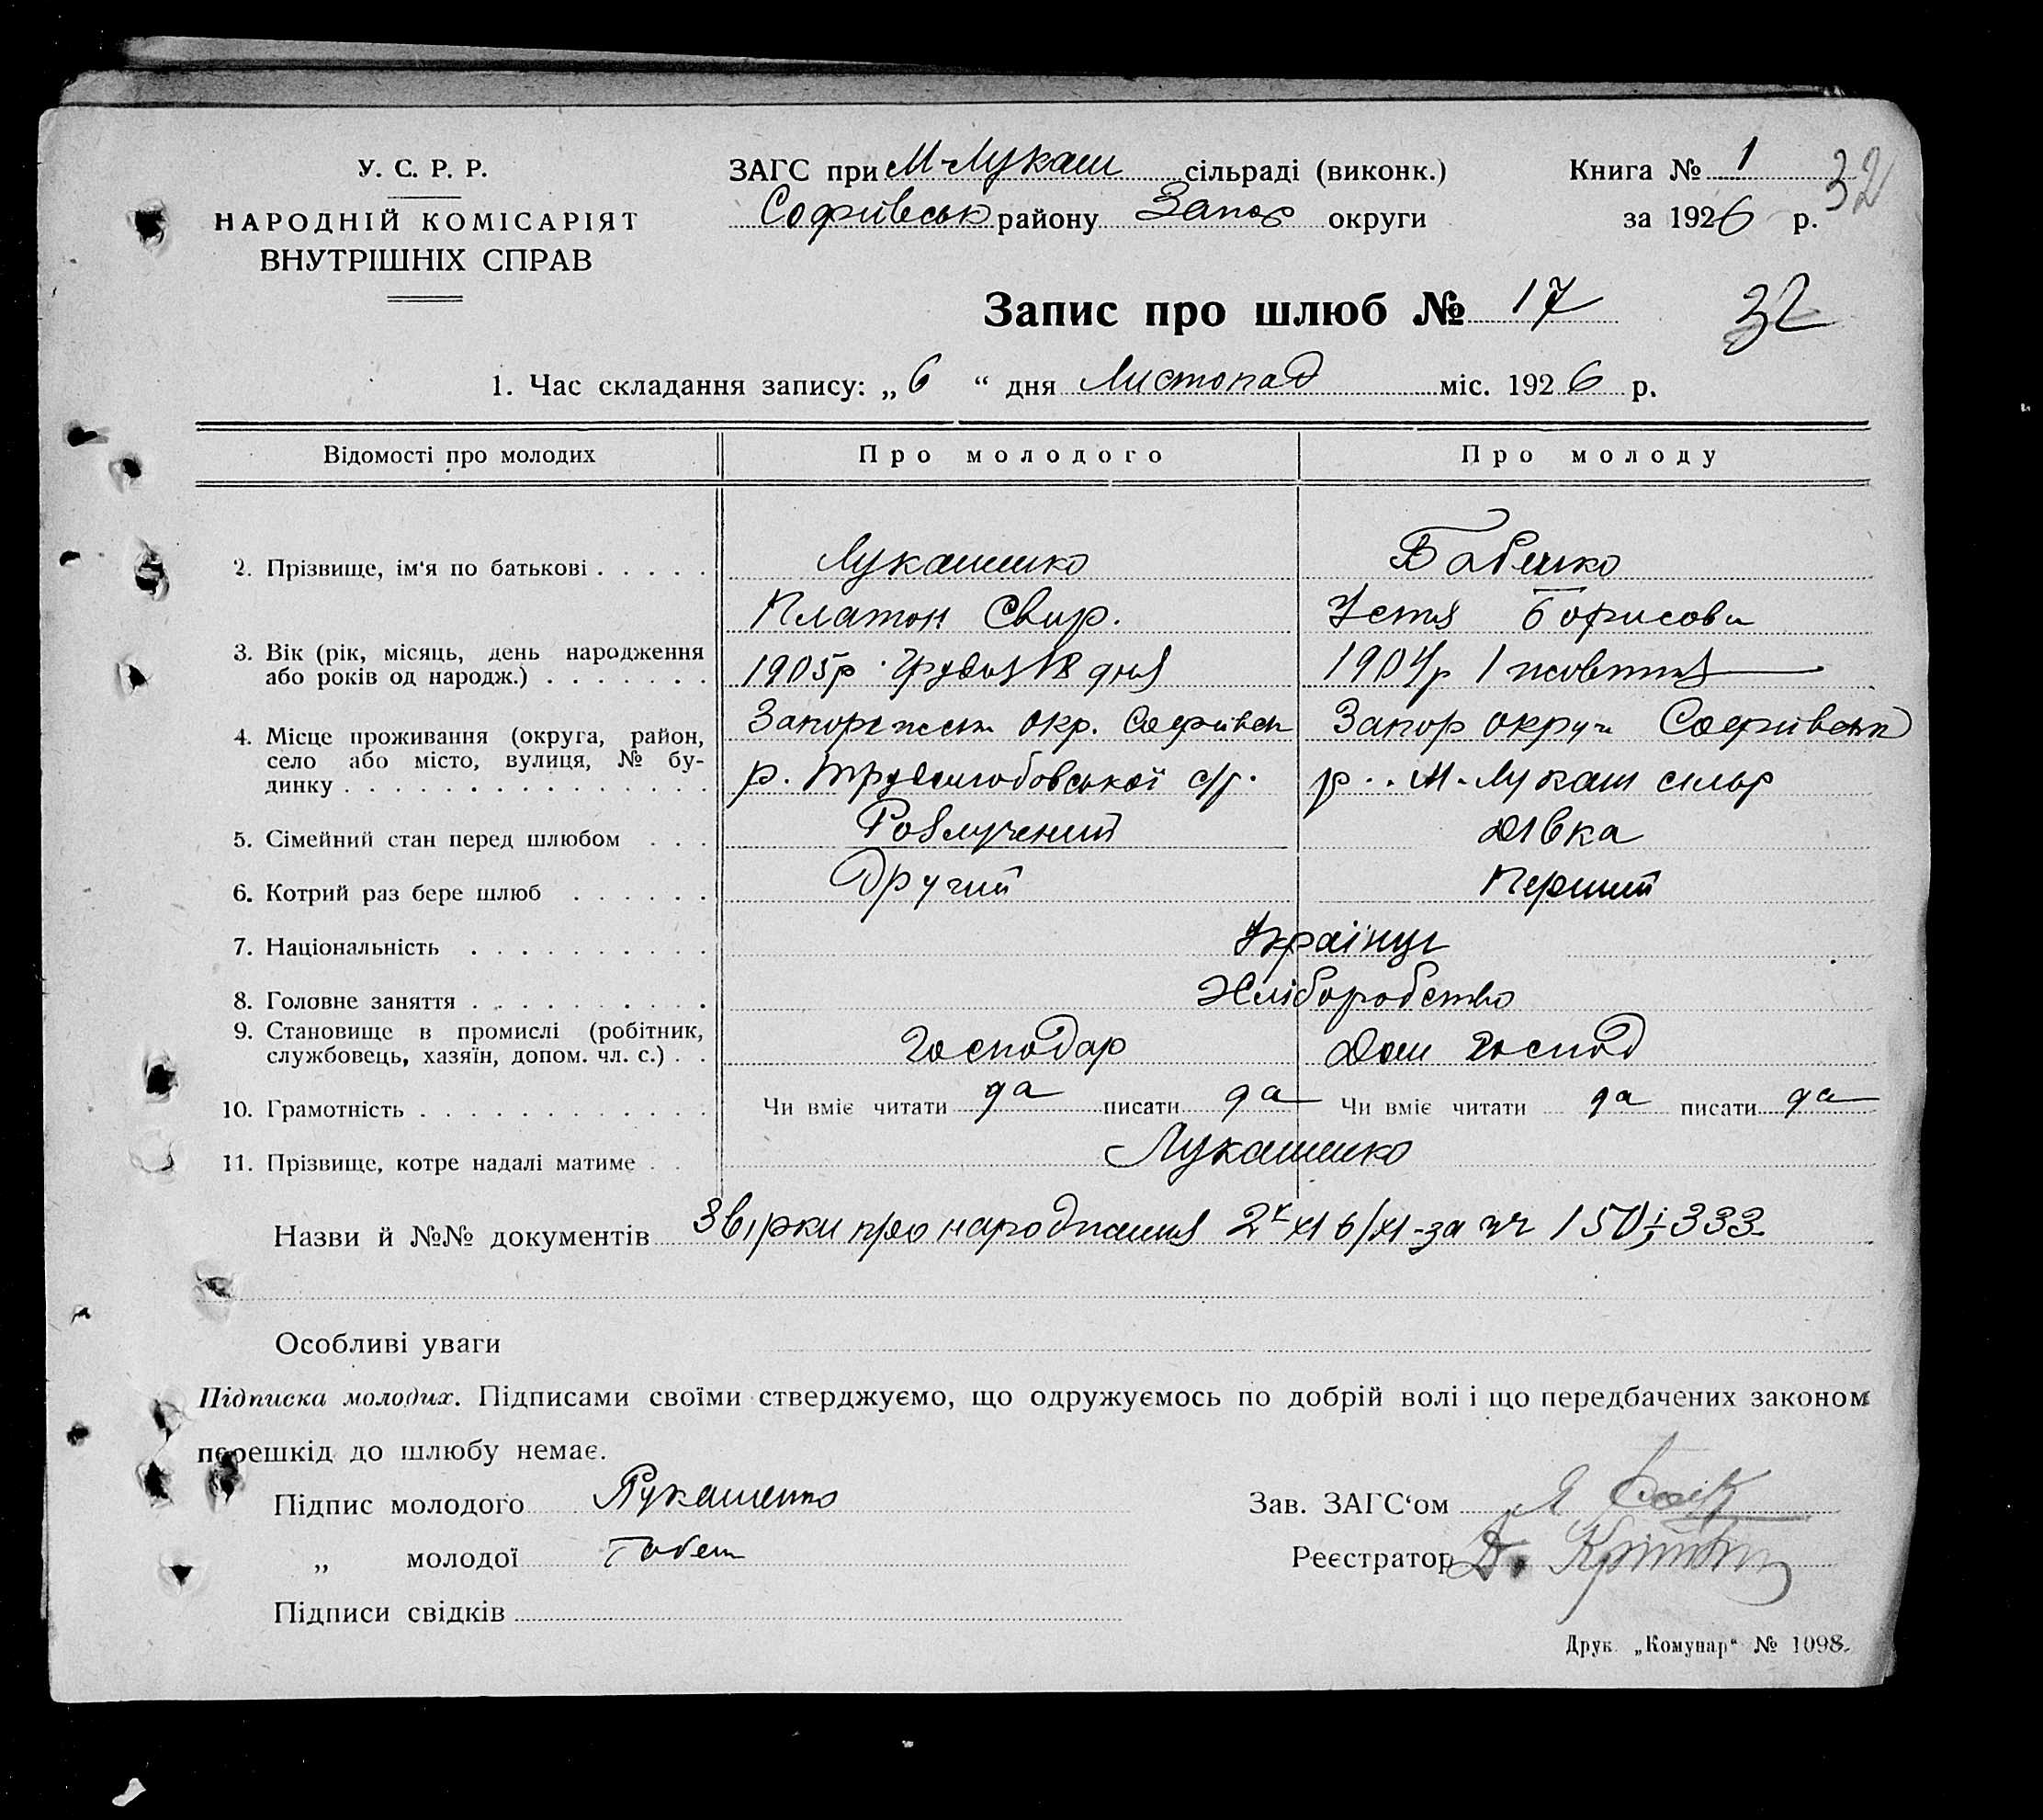 У. С. Р. Р.
НАРОДНІЙ КОМІСАРІЯТ
ВНУТРІШНІХ СПРАВ
ЗАГС при М-Лукаш сільраді (виконк.)
Софиївськ району Запор округи
Книга № 1
за 1926 р.
32
Запис про шлюб № 17
32
1. Час складання запису: „6“ дня Листопад міс. 1926 р.
Відомості про молодих Про молодого Про молоду
2. Прізвище, ім'я по батькові Лукашенко Бабенко
Платон Свир. Устя Борисовн
3. Вік (рік, місяць, день народження
або років од народж.) 1905р Грудня 18 дня 1904р 1 жовтня
4. Місце проживання (округа, район,
село або місто, вулиця, № бу-
динку
Запорожськ окр. Софиївськ Запор округи Софиївськ
р. Трудолюбовської с/р. р. М-Лукаш сільр
5. Сімейний стан перед шлюбом Розлучений Дівка
6. Котрий раз бере шлюб Другий Перший
7. Національність Українці
8. Головне заняття Хліборобство
9. Становище в промислі (робітник,
службовець, хазяїн, допом. чл. с.) Господар Дом господ
10. Грамотність Чи вміє читати да писати да Чи вміє читати да писати да
11. Прізвище, котре надалі матиме Лукашенко
Назви й №№ документів Звірки про народження 6/XI за 150 і 333
Особливі уваги
Підписка молодих. Підписами своїми стверджуємо, що одружуємось по добрій волі і що передбачених законом
перешкід до шлюбу немає.
Підпис молодого Лукашенко
Зав. ЗАГС‘ом
„ молодої Бабен
Реєстратор Д.
Підписи свідків
Друк. „Комунар“ № 1098.